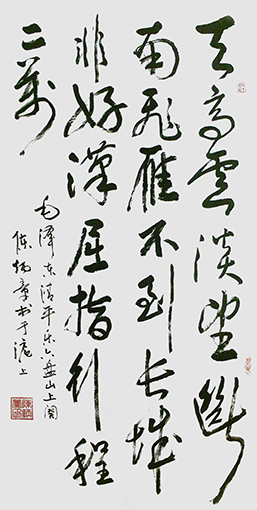 天高雲淡望斷
南飛雁不到长城
非好漢屈指行程
二萬
毛澤东清平乐六盘山上阕
陈炳章书于滬上